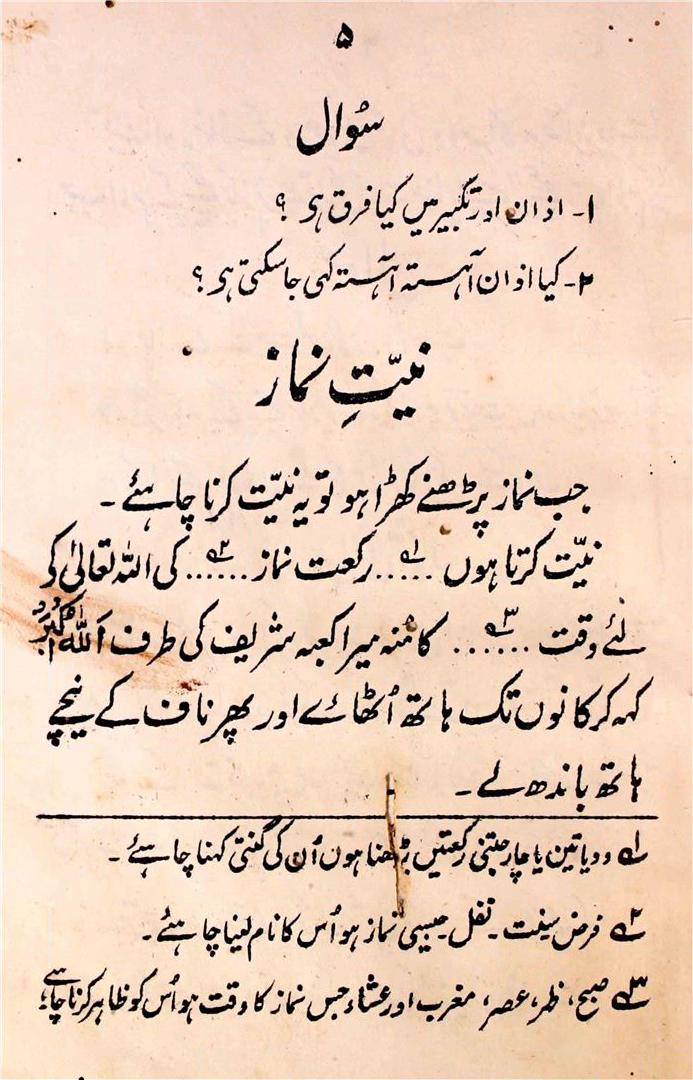 ۵
سُوال
۱۔ اذان اور تکبیر میں کیا فرق ہی ؟
۲۔ کیا اذان آہستہ آہستہ کہی جاسکتی ہی ؟
نیّتِ نماز
جب نماز پڑھنے کھڑا ہو تو یہ نیّت کرنا چاہئے ۔
نیّت کرتا ہوں ..... ۱؎ رکعت نماز ...... ۲؎ کی اللہ تعالیٰ کو
لئے وقت ...... ۳؎ کا مُنہ میرا کعبہ شریف کی طرف اَللّٰهُ اَكْبَرُ
کہہ کر کانوں تک ہاتھ اُٹھائے اور پھر ناف کے نیچے
ہاتھ باندھ لے ۔
۱؎ دو یا تین یا چار جتنی رکعتیں پڑھنا ہوں اُن کی گنتی کہنا چاہئے ۔
۲؎ فرض سنت ۔ نفل ۔ جیسی نماز ہو اُس کا نام لینا چاہئے ۔
۳؎ صبح، ظہر، عصر، مغرب اور عشاء جس نماز کا وقت ہو اُس کو ظاہر کرنا چاہئے؛